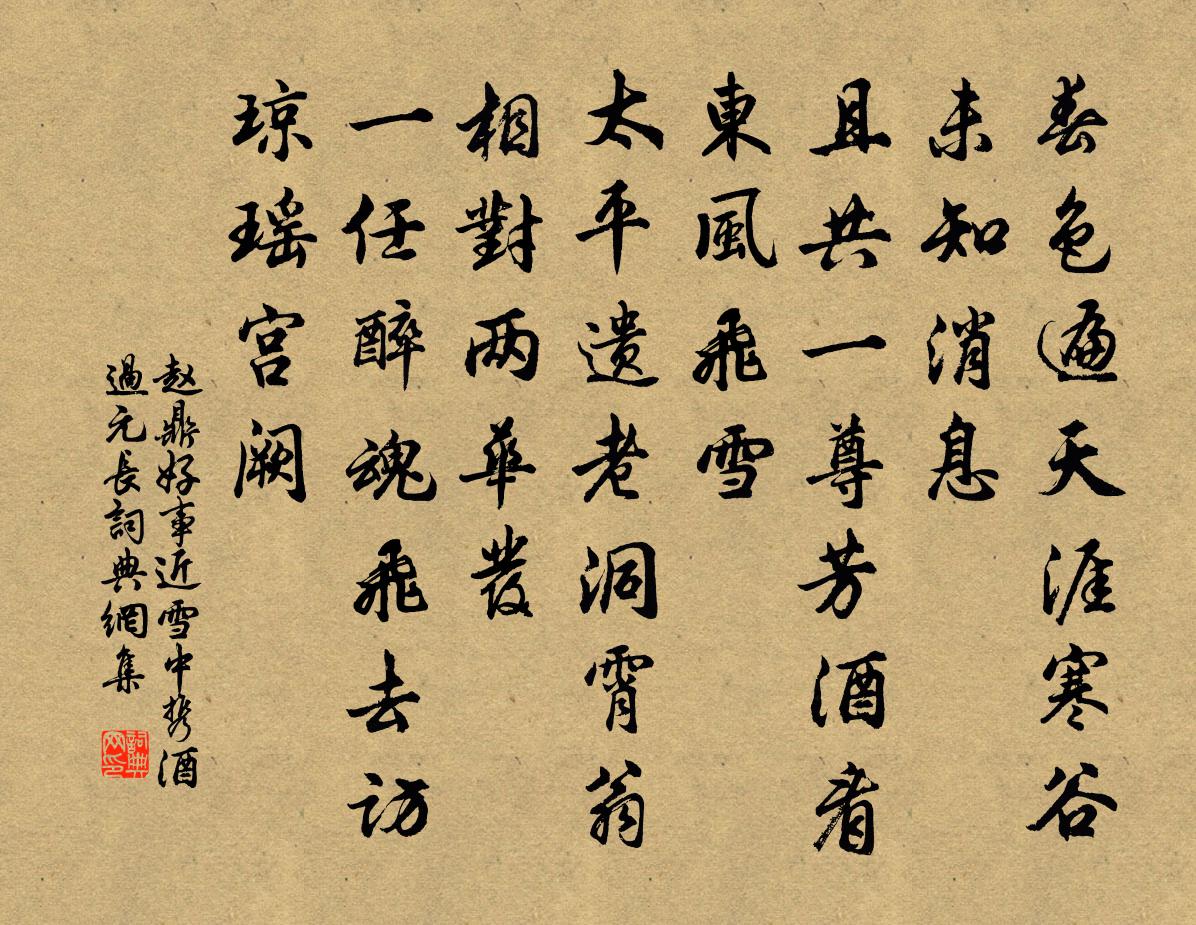 春色遍天涯寒谷
未知消息
且共一尊芳酒看
東風飛雪
太平遺老洞霄翁
相對兩華發
一任醉魂飛去訪
琼瑤宫阙
赵鼎好事近雪中携酒
過元長詞典網集
詞典网印